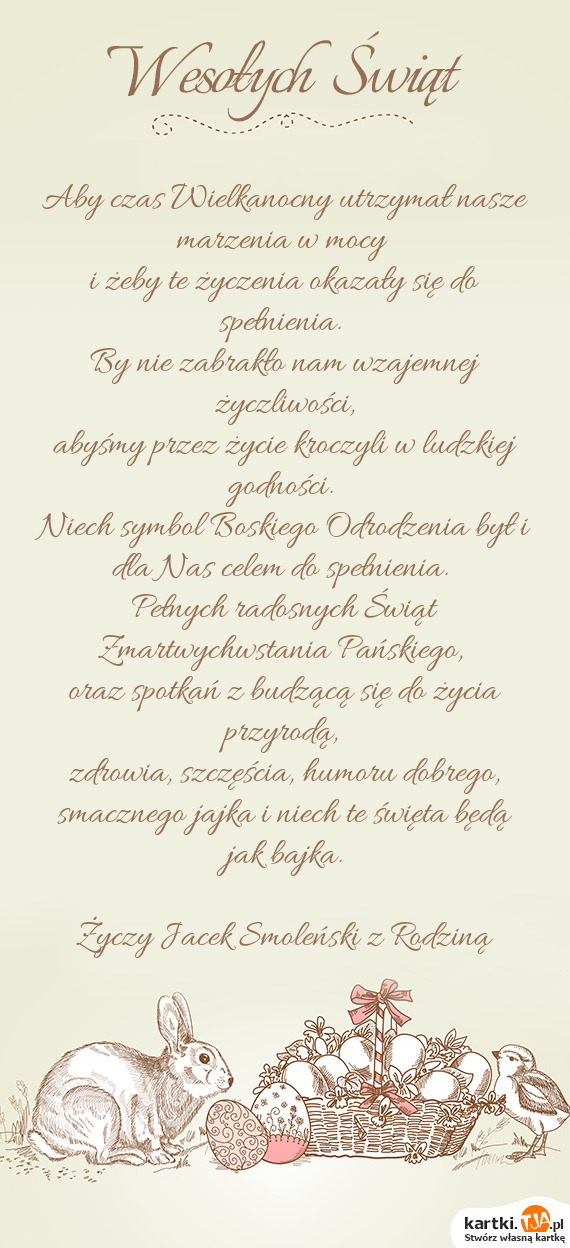 Wesołych Świąt
Aby czas Wielkanocny utrzymał nasze
marzenia w mocy
i żeby te życzenia okazały się do
spełnienia.
By nie zabrakło nam wzajemnej
życzliwości,
abyśmy przez życie kroczyli w ludzkiej
godności.
Niech symbol Boskiego Odrodzenia był i
dla Nas celem do spełnienia.
Pełnych radosnych Świąt
Zmartwychwstania Pańskiego,
oraz spotkań z budzącą się do życia
przyrodą,
zdrowia, szczęścia, humoru dobrego,
smacznego jajka i niech te święta będą
jak bajka.
Życzy Jacek Smoleński z Rodziną
kartki.TJA.pl
Stwórz własną kartkę